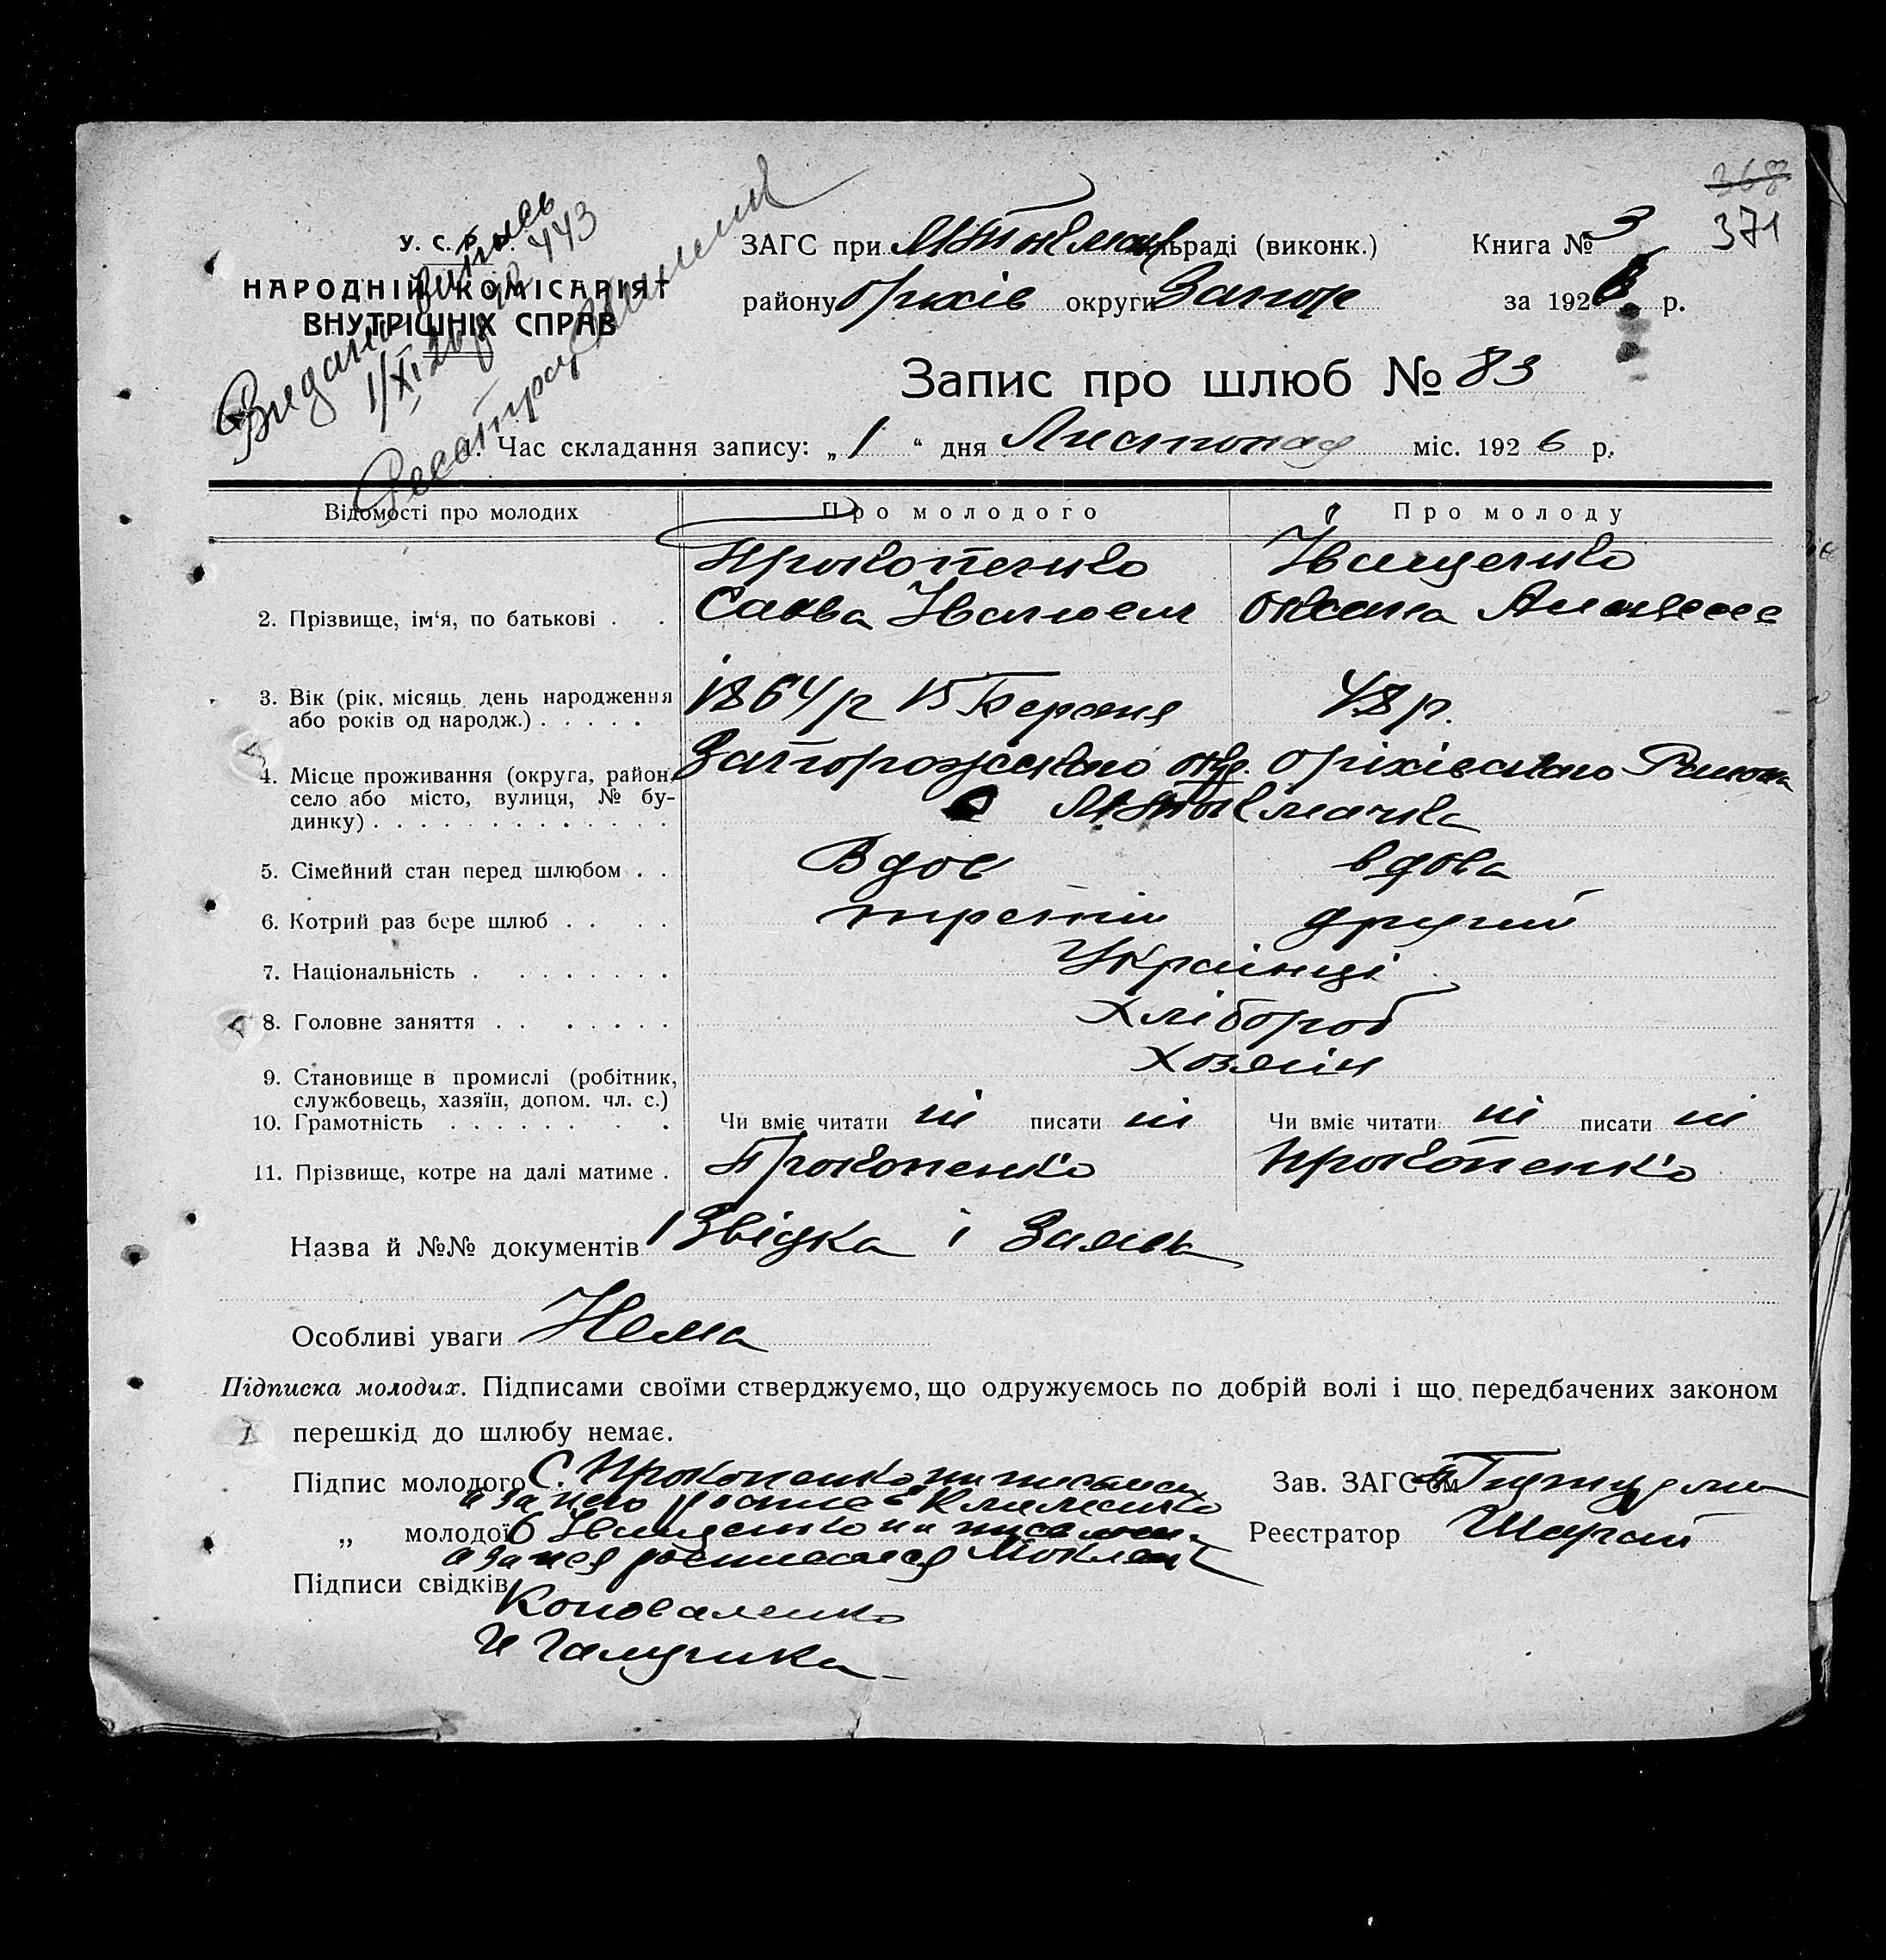 368
371
У. С. Р. Р.
НАРОДНІЙ КОМІСАРІЯТ
ВНУТРІШНІХ СПРАВ
1/XI 26 р. № 443
ЗАГС при М Токмач льраді (виконк.) Книга № 3
району Оріхів округи Запор за 1926 р.
Запис про шлюб № 83
1. Час складання запису: „1“ дня Листопад міс. 1926 р.
Відомості про молодих Про молодого Про молоду
Прокопенко Іващенко
2. Прізвище, ім'я, по батькові . . Савва Іванович Оксана
3. Вік (рік, місяць, день народження 1864 р 15 Березня 48 р.
або років од народж.) . . . . .
4. Місце проживання (округа, район, Запорожського окр. Оріхівського Района
село або місто, вулиця, № бу- с М Токмачка
динку) . . . . . . . . . . . . .
5. Сімейний стан перед шлюбом . . Вдов вдова
6. Котрий раз бере шлюб . . . . третій другий
7. Національність . . . . . . . . Українці
8. Головне заняття . . . . . . . Хлібороб
9. Становище в промислі (робітник, хозяїн
службовець, хазяїн, допом. чл. с.)
10. Грамотність . . . . . . . . Чи вміє читати ні писати ні Чи вміє читати ні писати ні
11. Прізвище, котре на далі матиме . Прокопенко Прокопенко
Назва й №№ документів Звідка і Заява
Особливі уваги Нема
Підписка молодих. Підписами своїми стверджуємо, що одружуємось по добрій волі і що передбачених законом
перешкід до шлюбу немає.
Підпис молодого С. Прокопенко Зав. ЗАГС'ом
а за него Клименко
„ молодої О Іващенко Реєстратор Шаргай
а за нея
Підписи свідків
Коноваленко
И Галушка